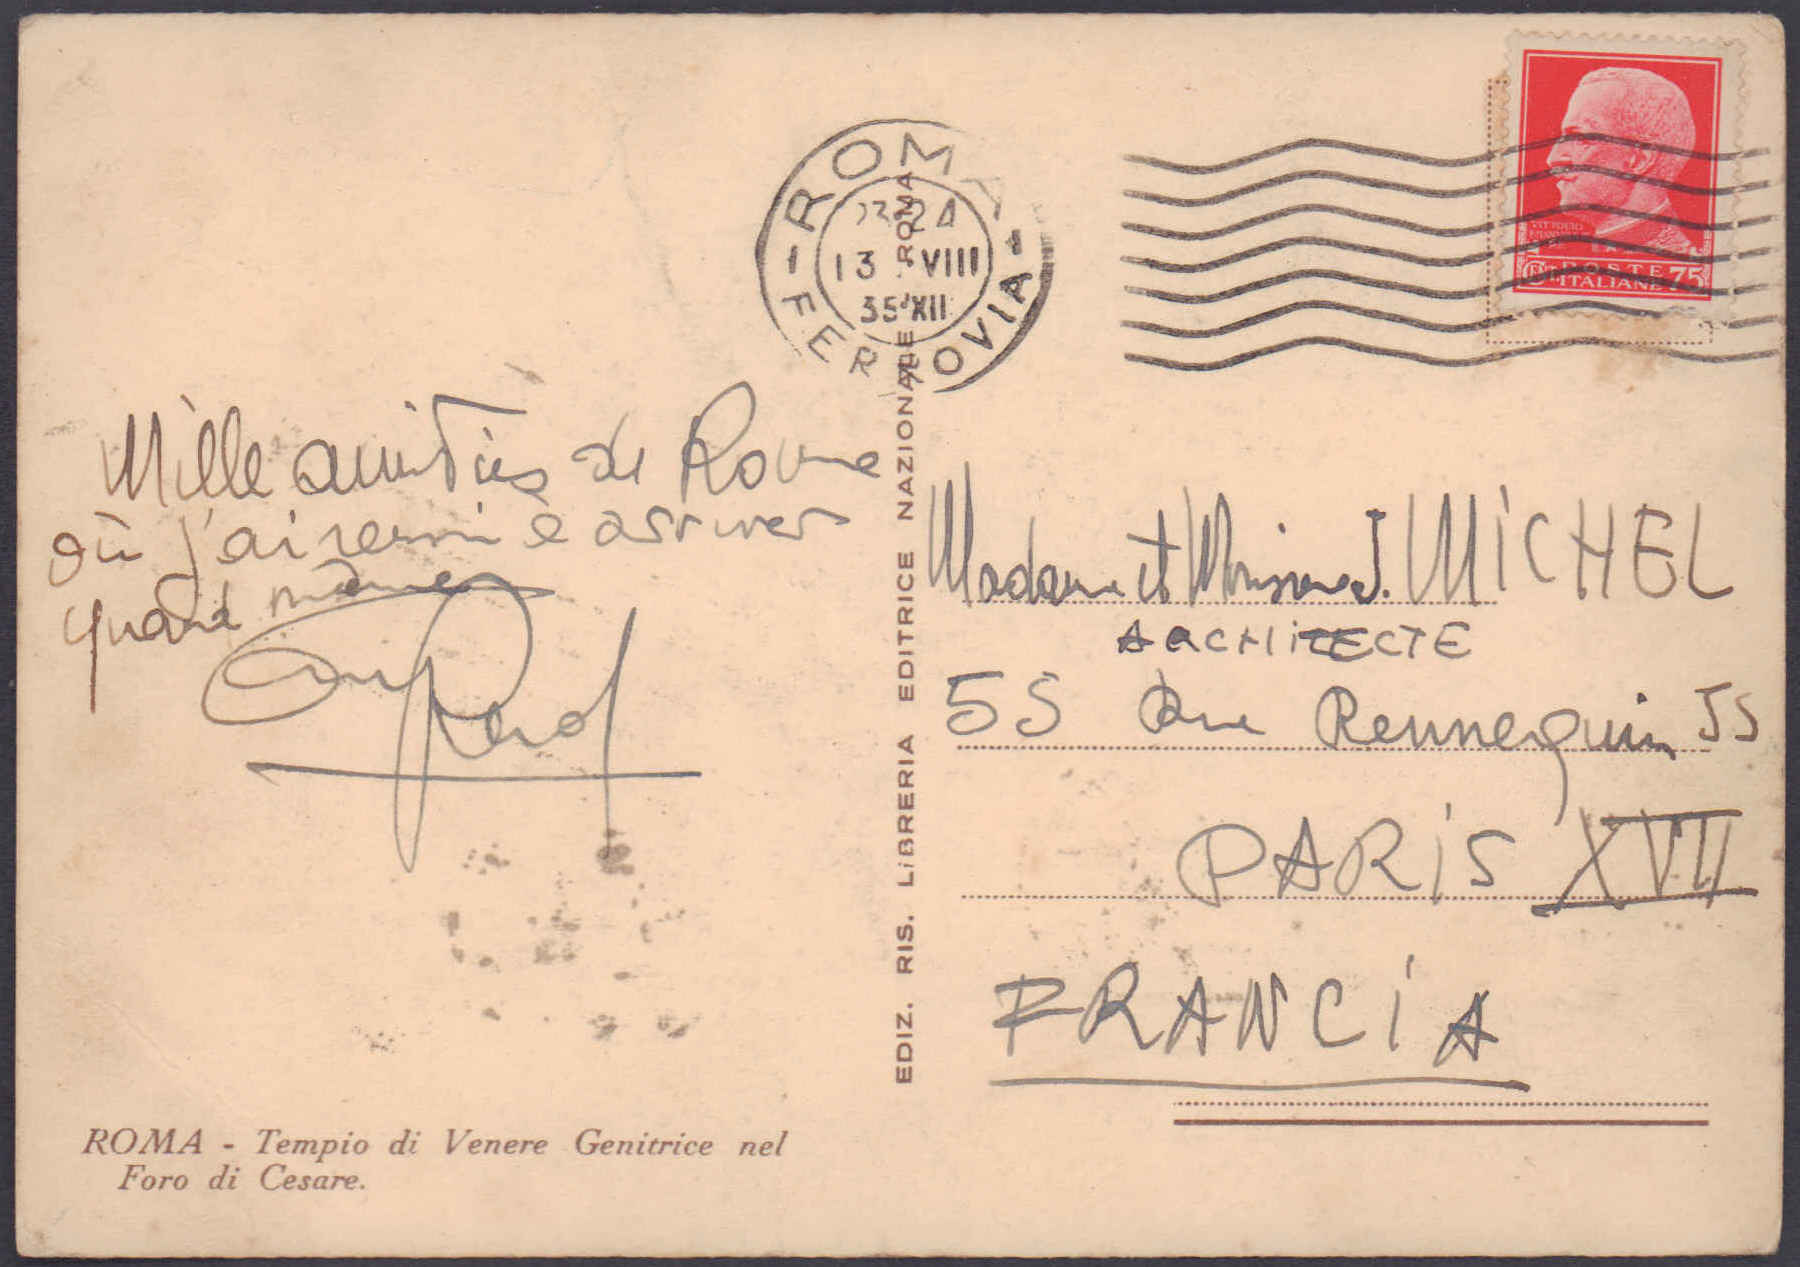 ROMA
FERROVIA
13 · VIII
35 XII
POSTE
ITALIANE 75
Mille amitiés de Rome
où j'ai réussi à arriver
quand même
EDIZ. RIS. LIBRERIA EDITRICE NAZIONALE ROMA
Madame et Monsieur J. MICHEL
ARCHITECTE
55 Rue Rennequin 55
PARIS XVII
FRANCIA
ROMA - Tempio di Venere Genitrice nel
Foro di Cesare.